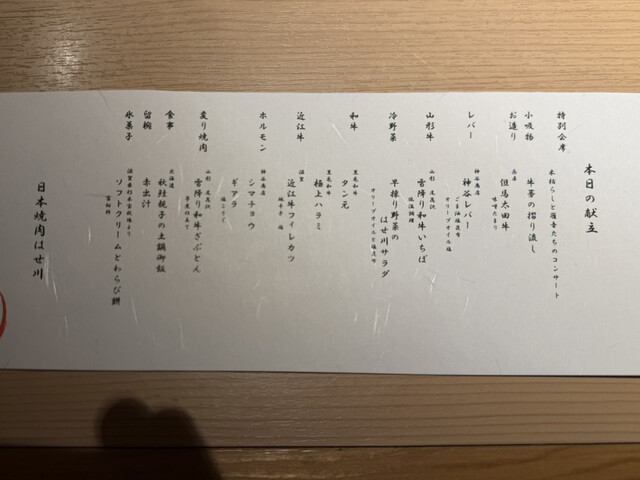 本日の献立
特別会席
木枯らしと雁音たちのコンサート
小吸物
牛蒡の摺り流し
お造り
兵庫
但馬太田牛
味噌たまり
レバー
神谷商店
神谷レバー
ごま油塩昆布
オリーブオイル塩
山形牛
山形
雪降り和牛いちぼ
低温調理
冷野菜
早採り野菜の
はせ川サラダ
オリーブオイルと塩昆布
和牛
黒毛和牛
タン元
黒毛和牛
極上ハラミ
近江牛
滋賀
近江牛フィレカツ
ホルモン
神谷商店
シマチョウ
ギアラ
炙り焼肉
山形
雪降り和牛ざぶとん
食事
北海道
秋鮭親子の土鍋御飯
留椀
赤出汁
氷菓子
ソフトクリームとわらび餅
日本焼肉はせ川